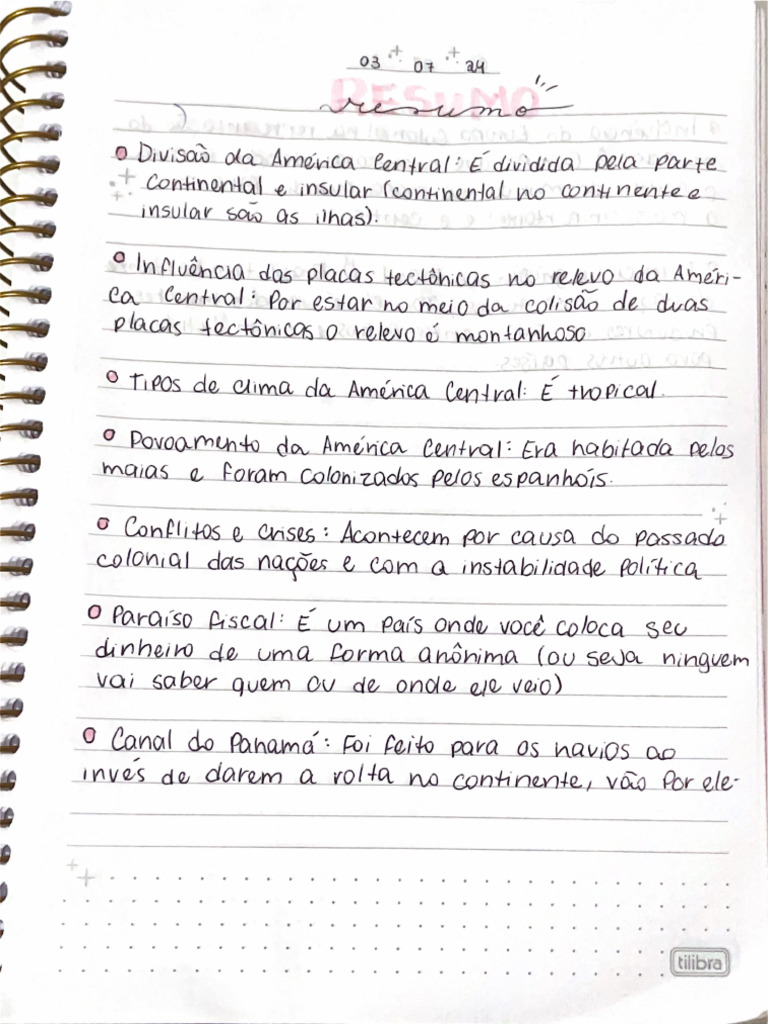 03 07 24
RESUMO
resumo
Divisão da América Central: É dividida pela parte
continental e insular (continental no continente e
insular são as ilhas).
Influência das placas tectônicas no relevo da Améri-
ca Central: Por estar no meio da colisão de duas
placas tectônicas o relevo é montanhoso
Tipos de clima da América Central: É tropical.
Povoamento da América Central: Era habitada pelos
maias e foram colonizados pelos espanhóis.
Conflitos e crises: Acontecem por causa do passado
colonial das nações e com a instabilidade política
Paraíso fiscal: É um país onde você coloca seu
dinheiro de uma forma anônima (ou seja ninguem
vai saber quem ou de onde ele veio)
Canal do Panamá: Foi feito para os navios ao
invés de darem a volta no continente, vão por ele-
tilibra